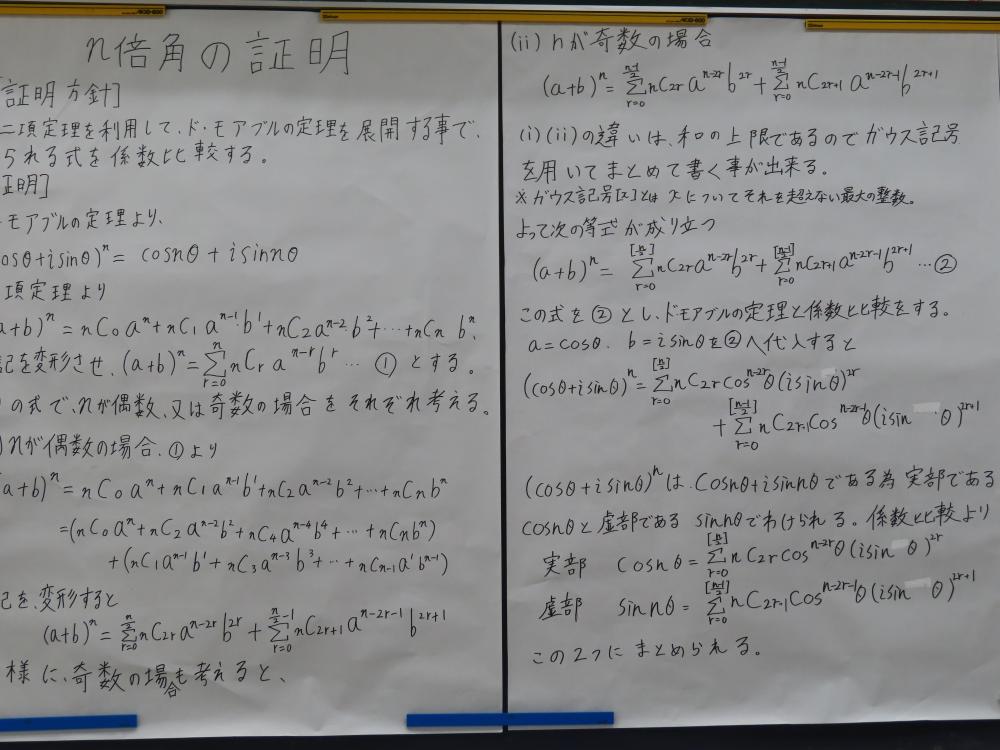 n倍角の証明
証明方針]
二項定理を利用して、ド・モアブルの定理を展開する事で、
られる式を係数比較する。
証明]
モアブルの定理より、
osθ+isinθ)^n = cosnθ + isinnθ
項定理より
a+b)^n = nC0 a^n + nC1 a^{n-1} b^1 + nC2 a^{n-2} b^2 + … + nCn b^n、
記を変形させ、(a+b)^n = Σ_{r=0}^{n} nCr a^{n-r} b^r … ① とする。
の式で、nが偶数、又は奇数の場合をそれぞれ考える。
)nが偶数の場合、①より
a+b)^n = nC0 a^n + nC1 a^{n-1} b^1 + nC2 a^{n-2} b^2 + … + nCn b^n
=(nC0 a^n + nC2 a^{n-2} b^2 + nC4 a^{n-4} b^4 + … + nCn b^n)
+(nC1 a^{n-1} b^1 + nC3 a^{n-3} b^3 + … + nCn-1 a^1 b^{n-1})
記を、変形すると
(a+b)^n = Σ_{r=0}^{n/2} nC2r a^{n-2r} b^{2r} + Σ_{r=0}^{n/2-1} nC2r+1 a^{n-2r-1} b^{2r+1}
様に、奇数の場合も考えると、
(ii) nが奇数の場合
(a+b)^n = Σ_{r=0}^{(n-1)/2} nC2r a^{n-2r} b^{2r} + Σ_{r=0}^{(n-1)/2} nC2r+1 a^{n-2r-1} b^{2r+1}
(i)(ii)の違いは、和の上限であるのでガウス記号
を用いてまとめて書く事が出来る。
※ガウス記号[x]とは xについてそれを超えない最大の整数。
よって次の等式が成り立つ
(a+b)^n = Σ_{r=0}^{[n/2]} nC2r a^{n-2r} b^{2r} + Σ_{r=0}^{[(n-1)/2]} nC2r+1 a^{n-2r-1} b^{2r+1} …②
この式を②とし、ドモアブルの定理と係数比較をする。
a=cosθ、b=isinθを②へ代入すると
(cosθ+isinθ)^n = Σ_{r=0}^{[n/2]} nC2r cos^{n-2r}θ(isinθ)^{2r}
+ Σ_{r=0}^{[(n-1)/2]} nC2r+1 cos^{n-2r-1}θ(isin θ)^{2r+1}
(cosθ+isinθ)^n は、cosnθ+isinnθである為 実部である
cosnθと虚部である sinnθでわけられる。係数比較より
実部 cosnθ = Σ_{r=0}^{[n/2]} nC2r cos^{n-2r}θ(isin θ)^{2r}
虚部 sinnθ = Σ_{r=0}^{[(n-1)/2]} nC2r+1 cos^{n-2r-1}θ(isin θ)^{2r+1}
この2つにまとめられる。